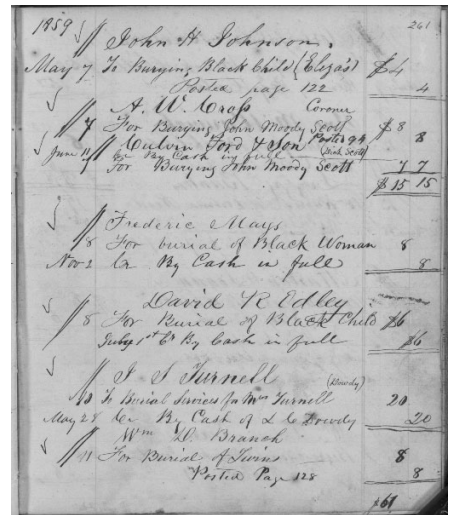 1859 261
John H Johnson.
May 7 To Burying Black Child (Eliza's) $4
Posted page 122 4
A. W. Cross Coroner
7 For Burying John Moody Scott $8
Posted 94 8
Calvin Ford & Son (Dick Scott)
June 11 Cr By Cash in full
7 For Burying John Moody Scott 7 7
$15 15
Frederic Mays
8 For burial of Black Woman 8
Nov 2 Cr By Cash in full 8
David R Edley
8 For Burial of Black Child $6
July 1st Cr By Cash in full $6
J S Turnell (Dowdy)
10 To Burial Services for Mrs Turnell 20
May 28 Cr By Cash of L C Dowdy 20
Wm D. Branch
11 For Burial of Twins 8
Posted Page 128 8
$61